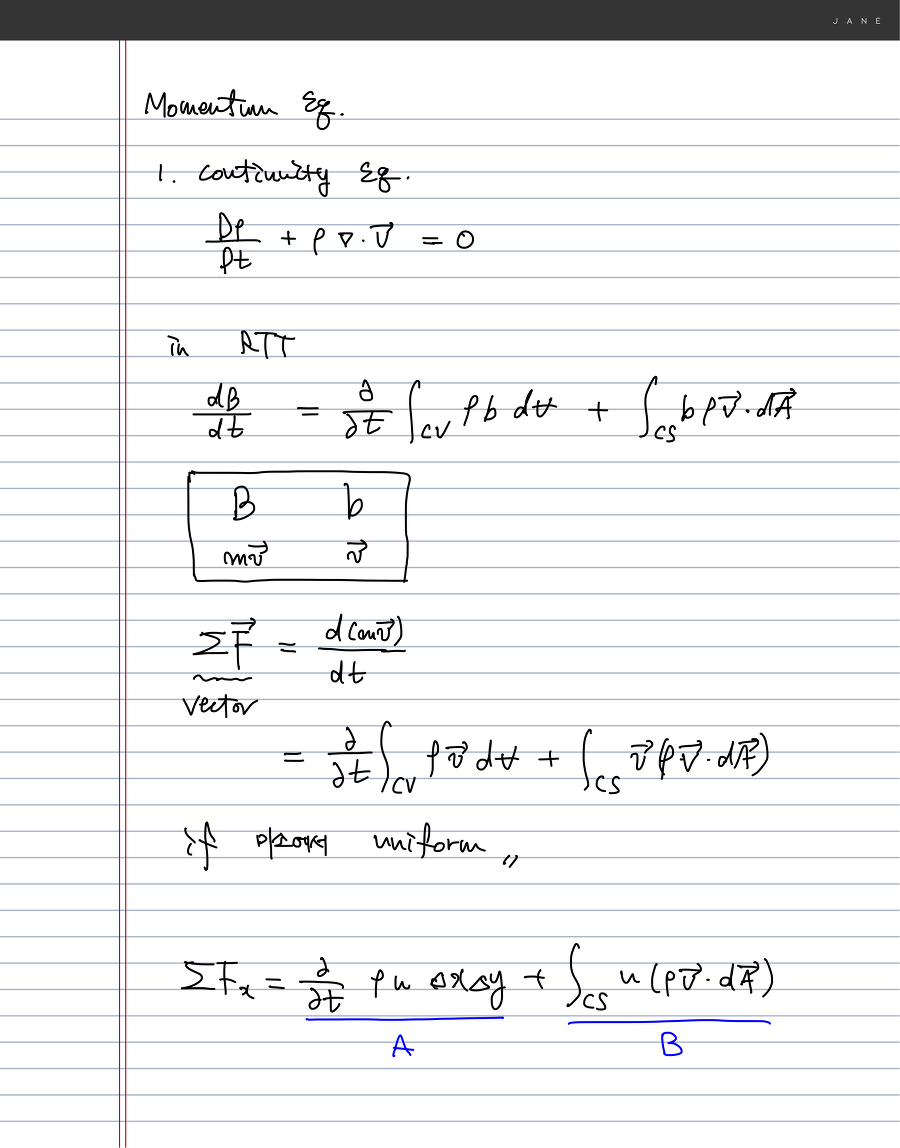 JANE
Momentum Eq.
1. Continuity Eq.
Dρ/Dt + ρ ∇·V⃗ = 0
in RTT
dB/dt = ∂/∂t ∫_CV ρb dV̶ + ∫_CS bρv⃗·dA⃗
B b
mv⃗ v⃗
ΣF⃗ = d(mv⃗)/dt
vector
= ∂/∂t ∫_CV ρv⃗ dV̶ + ∫_CS v⃗(ρv⃗·dA⃗)
if 미소에서 uniform,,
ΣF_x = ∂/∂t ρu ΔxΔy + ∫_CS u(ρv⃗·dA⃗)
A B